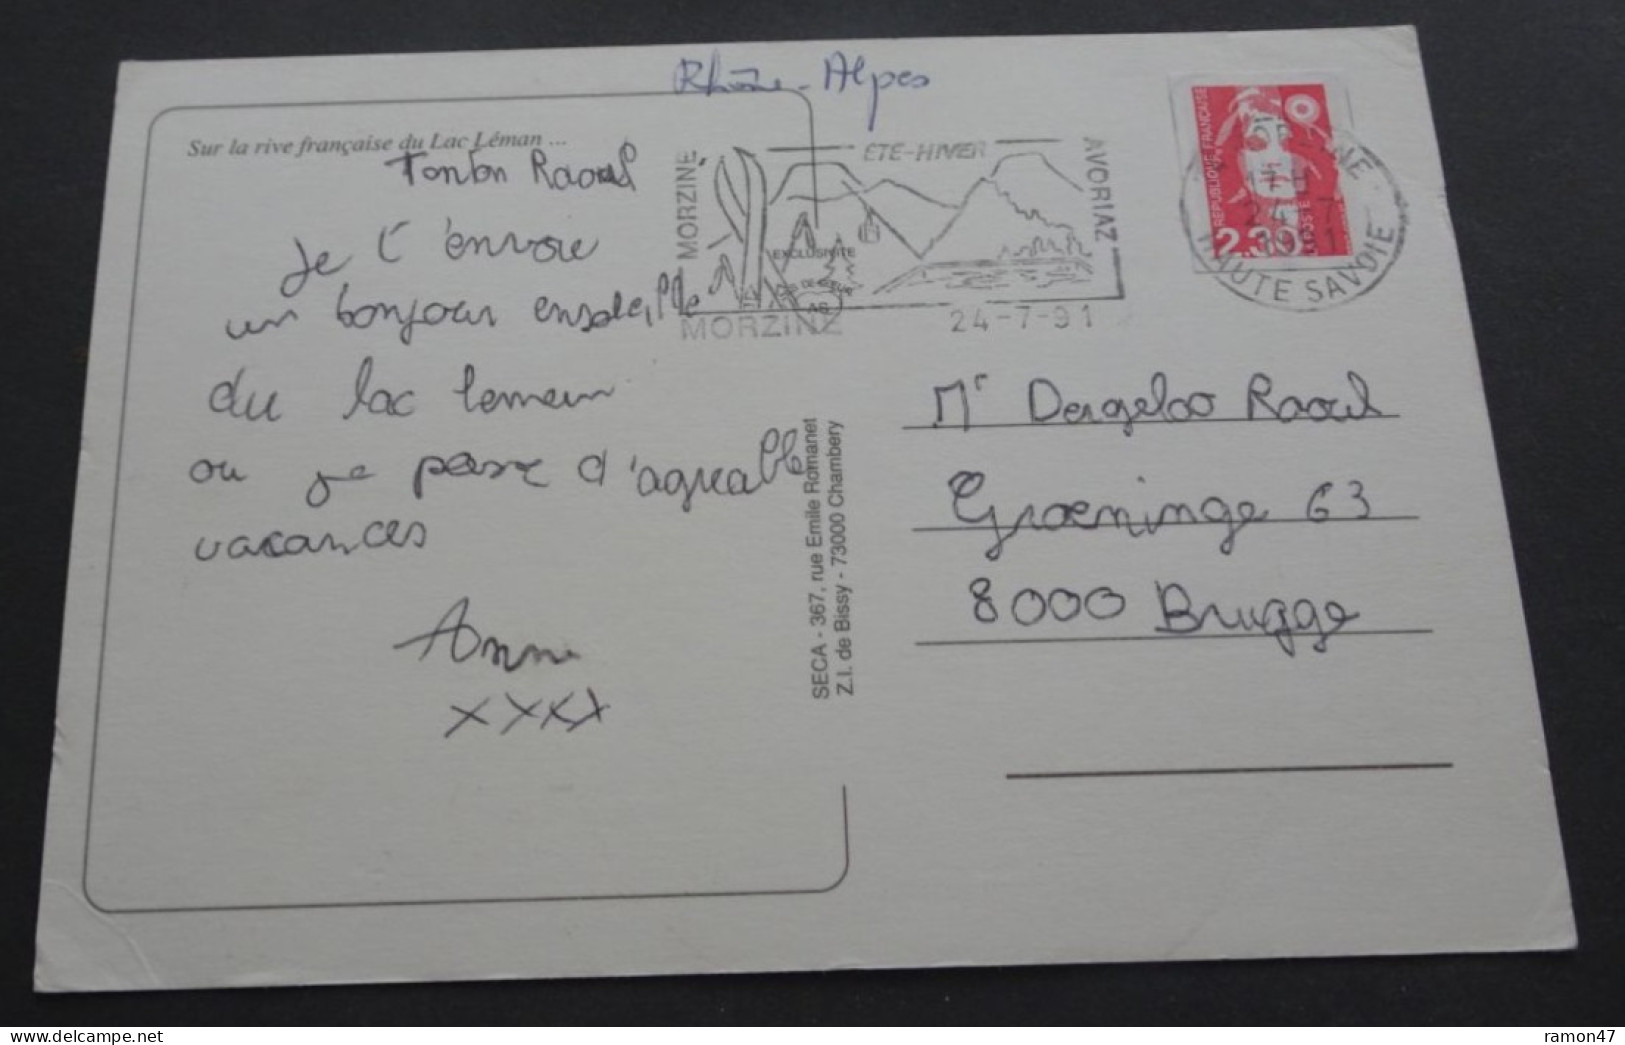 Rhône-Alpes
Sur la rive française du Lac Léman ...
Tonton Raoul
Je t'envoie
un bonjour ensoleille
du lac lemen
ou je passe d'agreable
vacances
Anne
xxxx
SECA - 367, rue Emile Romanet
Z.I. de Bissy - 73000 Chambery
MORZINE
ETE-HIVER
AVORIAZ
EXCLUSIVITE
MORZINE
24-7-91
REPUBLIQUE FRANÇAISE
2.30
POSTE
24-7
HAUTE SAVOIE
Mr Dergeloo Raoul
Groeninge 63
8000 Brugge
ramon47